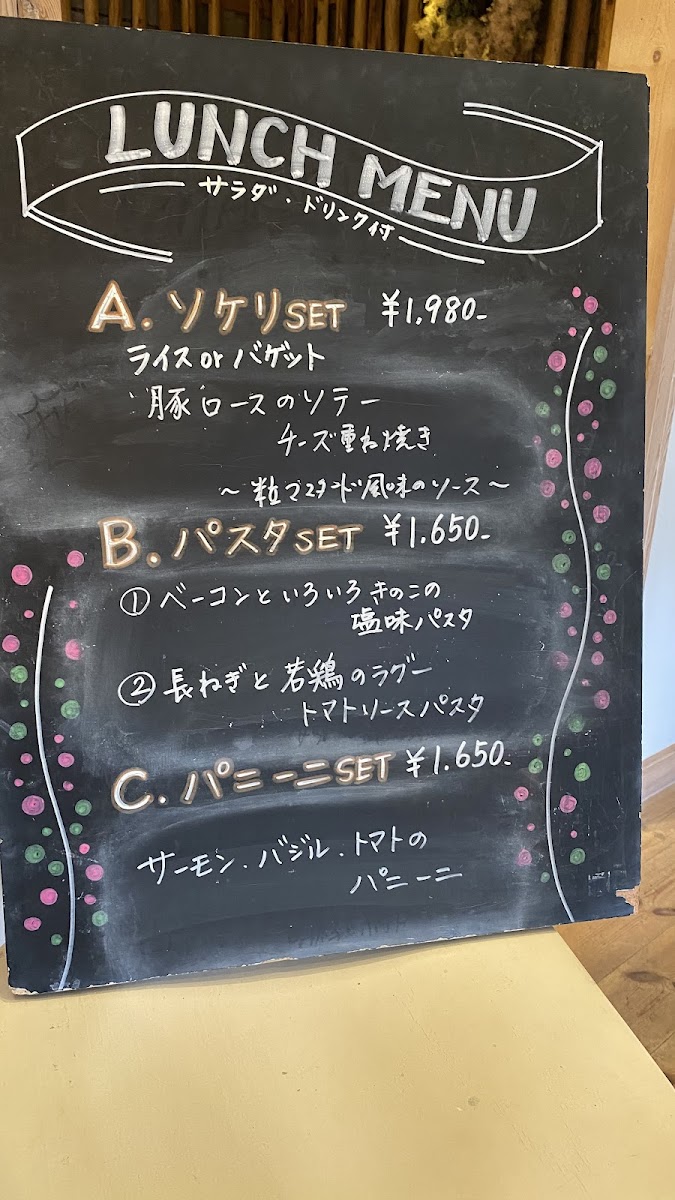 LUNCH MENU
サラダ・ドリンク付
A.ソケリSET ¥1,980-
ライス or バゲット
豚ロースのソテー
チーズ重ね焼き
～粒マスタード風味のソース～
B.パスタSET ¥1.650-
① ベーコンといろいろきのこの
塩味パスタ
② 長ねぎと若鶏のラグー
トマトソースパスタ
C.パニーニSET ¥1.650-
サーモン.バジル.トマトの
パニーニ